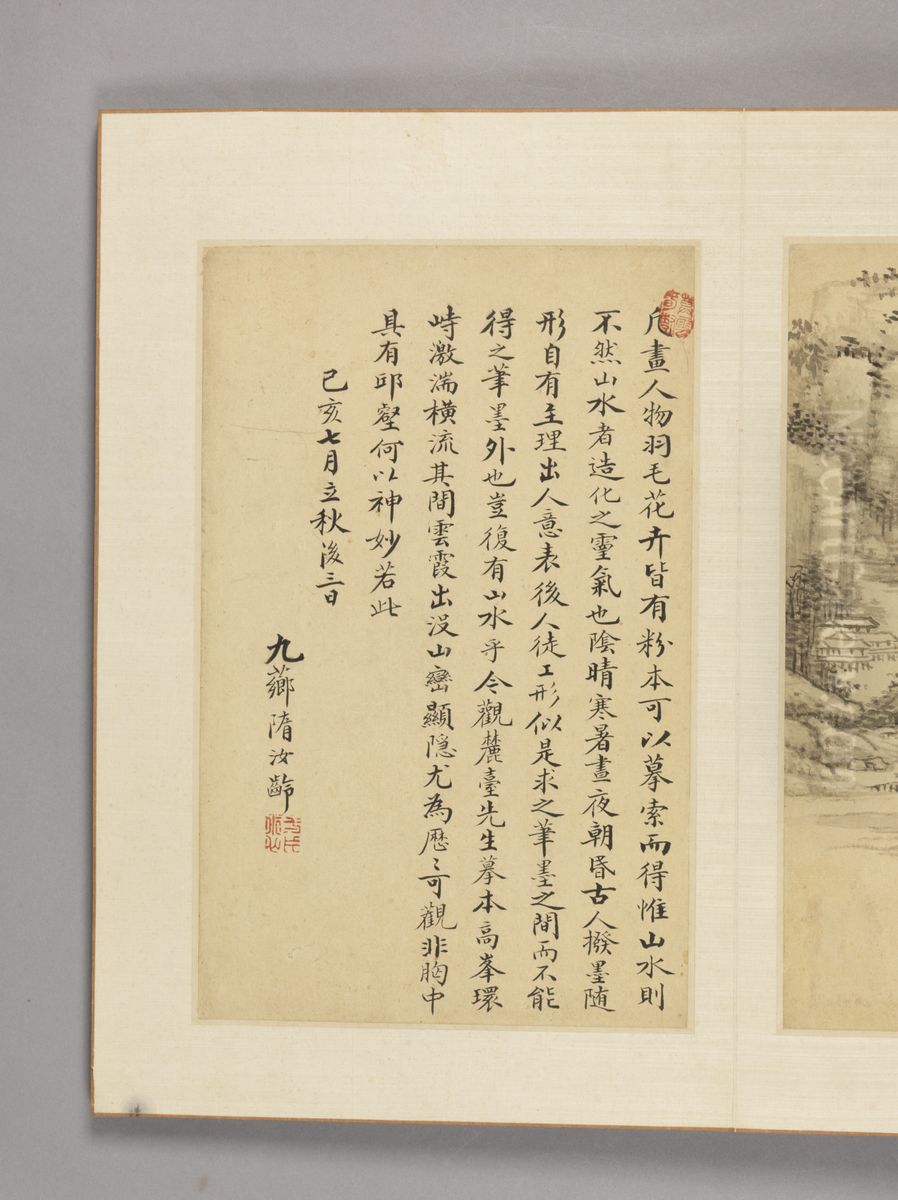 凡畫人物羽毛花卉皆有粉本可以摹索而得惟山水則
不然山水者造化之靈氣也陰晴寒暑晝夜朝昏古人撥墨随
形自有至理出人意表後人徒工形似是求之筆墨之間而不能
得之筆墨外也豈復有山水乎今觀麓臺先生摹本高峯環
峙激湍橫流其間雲霞出没山巒顯隐尤為歷〻可觀非胸中
具有邱壑何以神妙若此
己亥七月立秋後三日
九薌隋汝齡